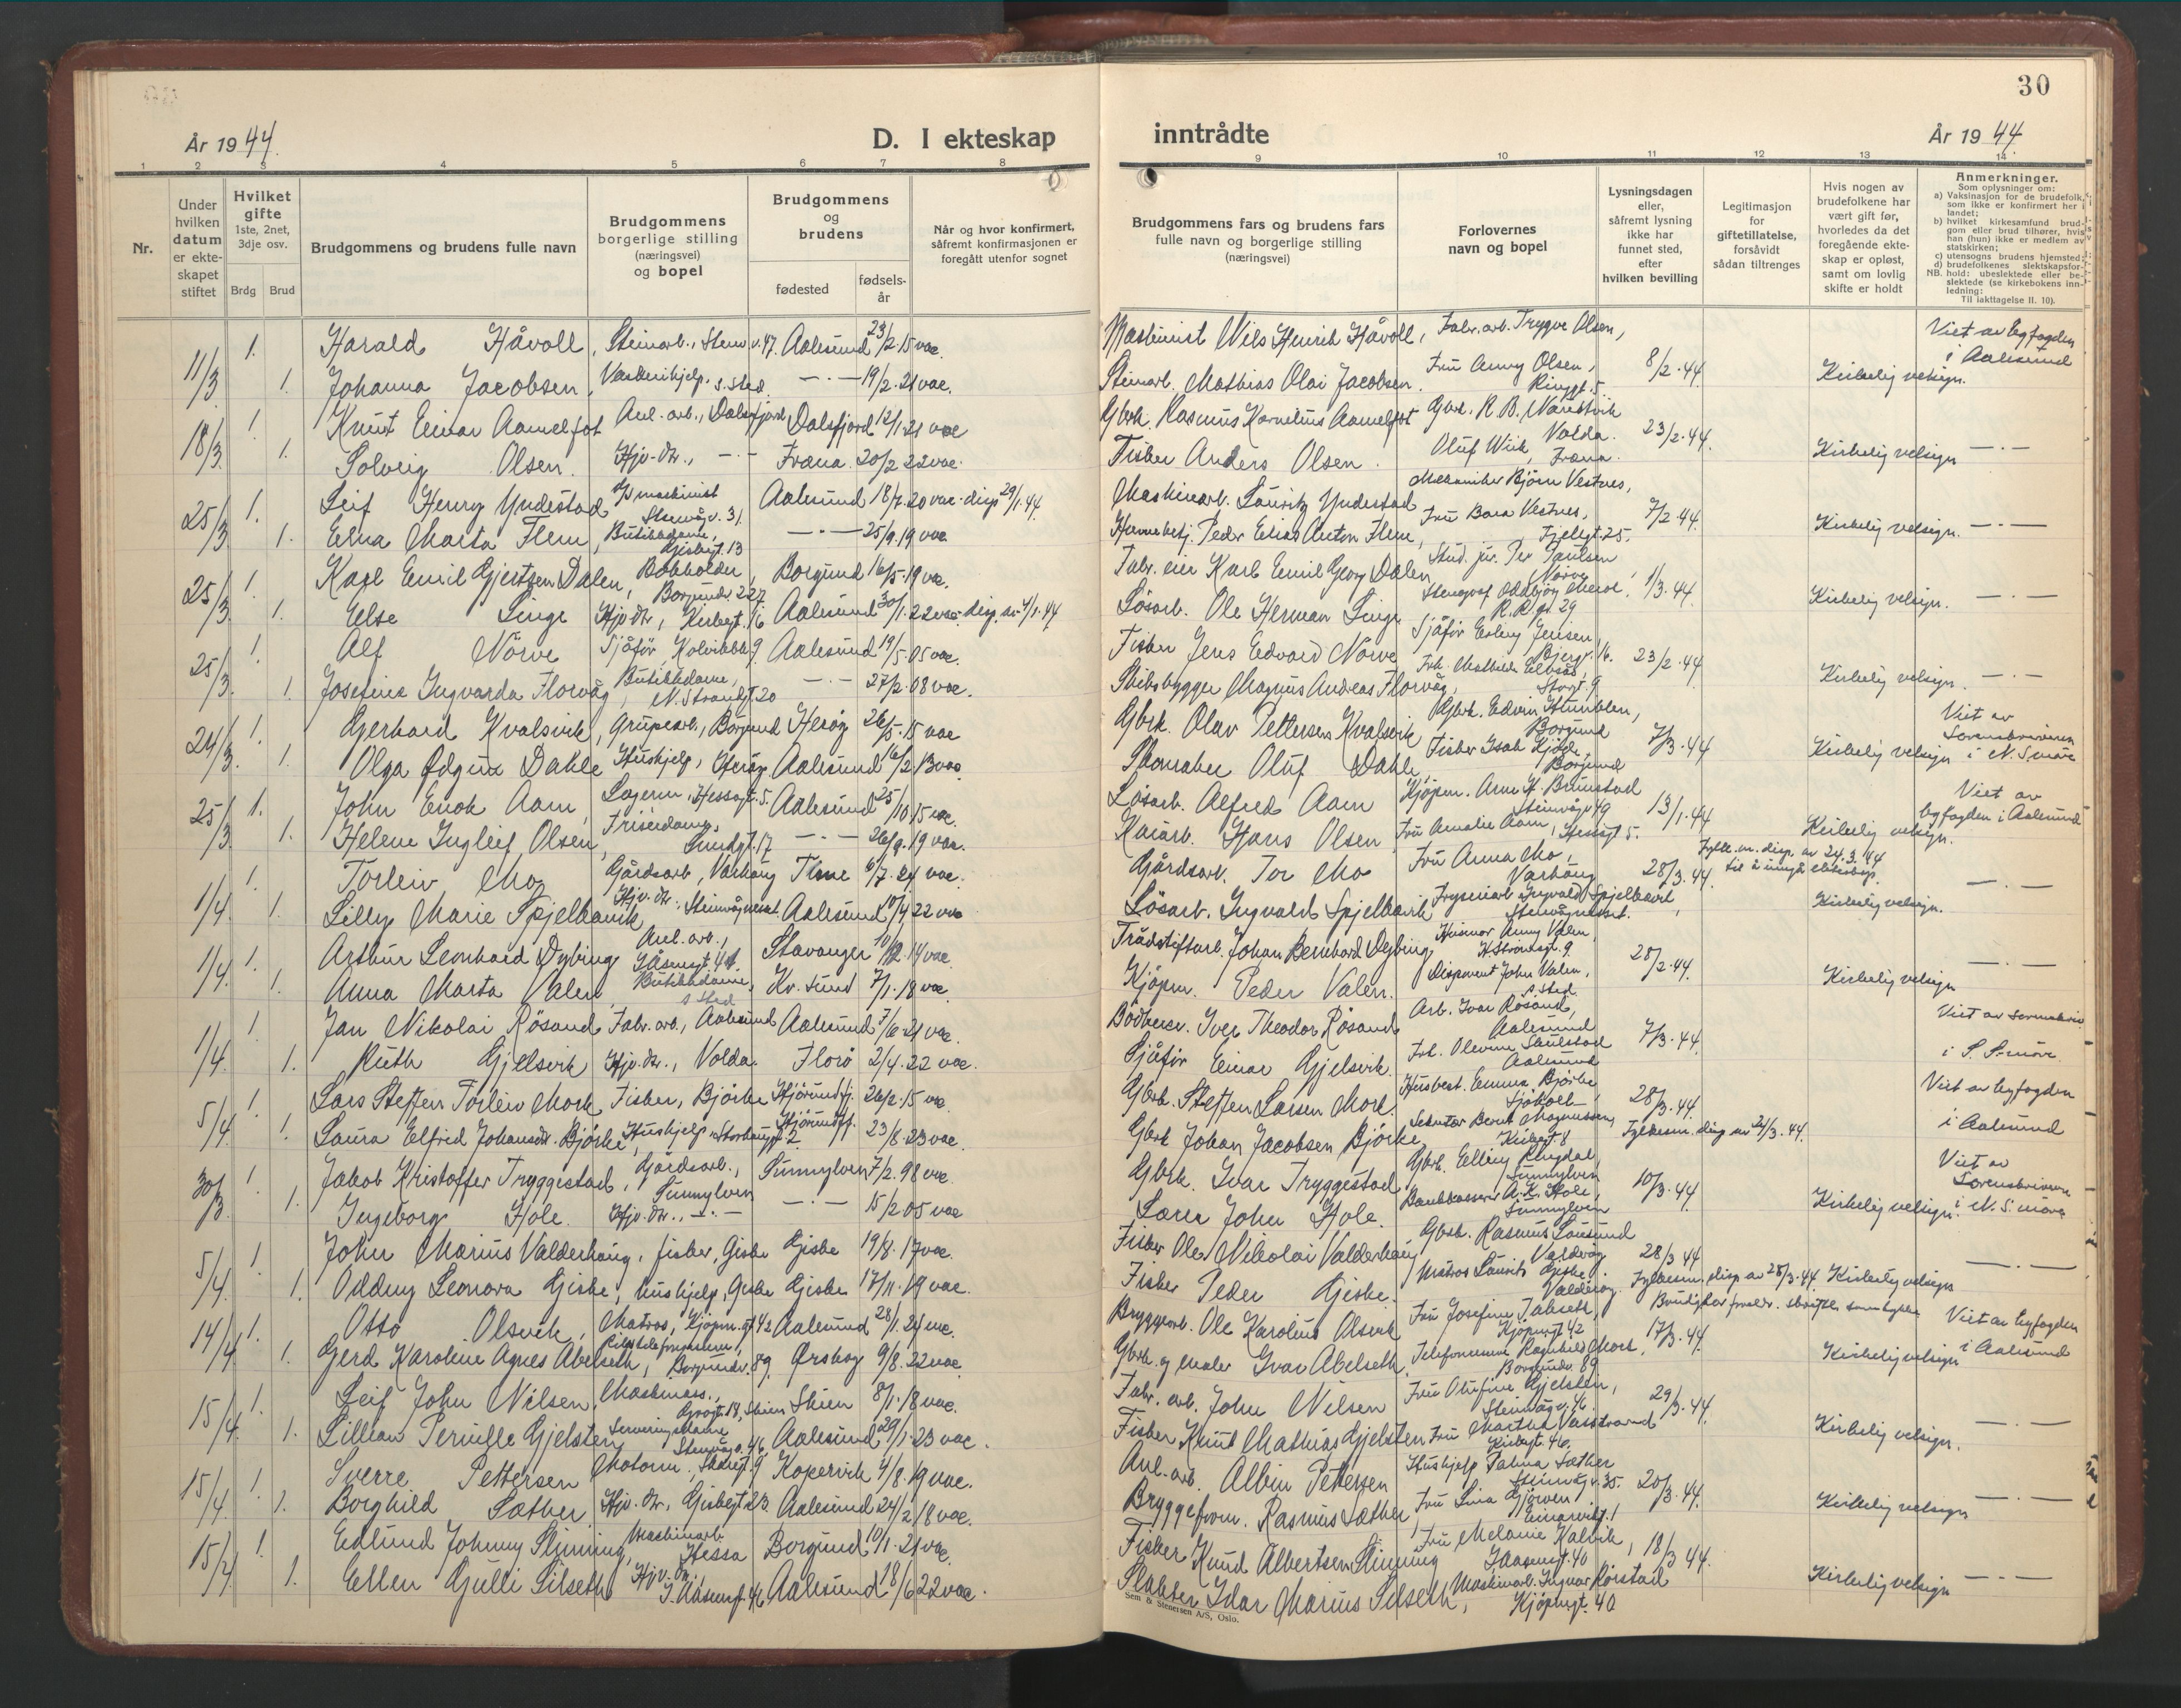 30
År 1944.
D. I ekteskap
inntrådte
År 1944.
1 2 3 4 5 6 7 8
9 10 11 12 13 14
Nr.
Under hvilken datum er ekteskapet stiftet
Hvilket gifte 1ste, 2net, 3dje osv.
Brdg Brud
Brudgommens og brudens fulle navn
Brudgommens borgerlige stilling (næringsvei) og bopel
Brudgommens og brudens
fødested
fødselsår
Når og hvor konfirmert, såfremt konfirmasjonen er foregått utenfor sognet
Brudgommens fars og brudens fars fulle navn og borgerlige stilling (næringsvei)
Forlovernes navn og bopel
Lysningsdagen eller, såfremt lysning ikke har funnet sted, efter hvilken bevilling
Legitimasjon for giftetillatelse, forsåvidt sådan tiltrenges
Hvis nogen av brudefolkene har vært gift før, hvorledes da det foregående ekteskap er opløst, samt om lovlig skifte er holdt
Anmerkninger.
Som oplysninger om:
a) Vaksinasjon for de brudefolk, som ikke er konfirmert her i landet;
b) hvilket kirkesamfund brudgom eller brud tilhører, hvis han (hun) ikke er medlem av statskirken;
c) utensogns brudens hjemsted;
d) brudefolkenes slektskapsforhold: ubeslektede eller beslektede (se kirkebokens innledning:
NB.
Til iakttagelse II. 10).
11/3 1. Harald Håvoll, Steinarb., Stenv. 47. Aalesund 23/2.15 vac. Maskinist Nils Henrik Håvoll, Fabr. arb. Trygve Olsen, 8/2.44. Viet av byfogden i Aalesund
1. Johanna Jacobsen, s. sted —.— 19/2.21 vac. Steinarb. Mathias Olai Jacobsen. Fru Anny Olsen, Ringgt. 5. Kirkelig velsign.
18/3. 1. Knut Einar Aamelfot Anl. arb., Dalsfjord Dalsfjord 12/1.21 vac Gbrk. Rasmus Kornelius Aamelfot Gbrk. R. B. Volda. 23/2.44.
1. Solveig Olsen. Hjv. dtr., —.— Fræna. 20/2 22 vac. Fisker Anders Olsen. Oluf Wiik, Fræna. Kirkelig velsign —.—
25/3. 1. Leif Henry Yndestad maskinist Stenvåg v. 31 Aalesund 18/7.20 vac. disp 29/1.44. Maskinarb. Lauritz Yndestad Mekaniker Bjørn Vestnes, 7/2.44.
1. Erna Marta Flem, Butikkdame, Giskegt. 13 —.— 25/9.19 vac. Havnebetj. Peder Elias Anton Flem, Fru Bara Vestnes, Fjellgt. 25. Kirkelig velsign. —.—
25/3. 1. Karl Emil Gjertsen Dalen, Bokholder, Borgundv. 227 Borgund 16/5.19 vac. Fabr. eier Karl Emil Georg Dalen Stud. jur. Per Paulsen Nørve, 1/3.44.
1. Else Linge Hjv. dtr, Kirkegt. 16 Aalesund 30/1.22 vac. disp. av 4/1.44 Løsarb. Ole Herman Linge R. R. gt. 29 Kirkelig velsign. —.—
25/3. 1. Alf Nørve Sjåfør, 9 Aalesund 19/5.05 vac. Fisker Jens Edvard Nørve Sjåfør Erling Jensen, Bjergv. 16. 23/2.44
1. Josefine Ingvarda Florvåg, Butikkdame, N. Strandgt. 20 —.— 27/2.08 vac. Skibsbygger Magnus Andreas Florvåg, Storgt. 9 Kirkelig velsign. —.—
24/3. 1. Gerhard Kvalsvik, Grubearb., Borgund Herøy 26/5.15 vac Gbrk. Olav Pettersen Kvalsvik Gbrk. Edvin Humblen, Borgund 7/3.44 Viet av Sorenskriveren i N. S.møre
1. Olga Dahle Hushjelp, Aalesund 16/2.13 vac. Skomaker Oluf Dahle, Fisker Isak Borgund Kirkelig velsign
25/3. 1. John Enok Aam, Lagerm, Hessagt. 5. Aalesund 25/10.15 vac. Løsarb. Alfred Aam Kjøpm. Arne H. Brunstad Steinvåg v 49 13/1.44 Viet av byfogden i Aalesund
1. Helene Ingleif Olsen, Friserdame, Sundgt. 17 —.— 26/9.19 vac. Kaiarb. Hans Olsen Fru Amalie Aam, Hessagt 5. Kirkelig velsign.
1/4. 1. Torleiv Mo Gårdsarb, Varhaug Time 6/7.24 vac. Gårdsarb. Tor Mo Fru Anna Mo, Varhaug 28/3.44. Fylk. m. disp. av 24.3.44 til å inngå ekteskap. —.—
1. Lilly Marie Spjelkavik Hjv. dtr. Steinvågneset. Aalesund 10/4 22 vac Løsarb. Ingvald Spjelkavik Ingvald Spjelkavik, Steinvågneset. Kirkelig velsign.
1/4. 1. Arthur Leonhard Dybing Anl. arb., Stavanger 10/12.14 vac. Trådstiftarb. Johan Bernhard Dybing, Anny Valen, gt. 9. 28/2.44. —.—
1. Anna Marta Valen Butikkdame, s. sted Kr. sund 7/1.18 vac. Kjøpm. Peder Valen. Disponent John Valen, s. sted. Kirkelig velsign
1/4. 1. Jan Nikolai Røsand Fabr. arb., Aalesund Aalesund 7/6.21 vac. Iver Theodor Røsand Arb. Ivar Røsand, Aalesund 7/3.44. Viet av sorenskriv. i S. S.møre.
1. Ruth Gjelsvik Hjv. dtr., Volda. Florø 2/4.22 vac. Sjåfør Einar Gjelsvik. Aalesund
5/4. 1. Lars Steffen Torleiv Mork, Fisker, Bjørke Hjørundfj. 26/2.15 vac. Gbrk. Steffen Larsen Mork. Emma Bjørke, Sjøholt 28/3.44. Viet av byfogden i Aalesund
1. Laura Elfred Johansdtr. Bjørke, Hushjelp, 2 Hjørundfj. 23/8.23 vac. Gbrk Johan Jacobsen Bjørke, Bernt Magnussen, Kirkegt. 8 Fylkesm. disp av 24/3.44.
30/3. 1. Jakob Kristoffer Tryggestad, Gårdsarb., Sunnylven Sunnylven 7/2.98 vac. Gbrk. Ivar Tryggestad Gbrk. Elling Ringdal, Sunnylven 10/3.44 Viet av Sorenskriveren i N. S.møre
1. Ingeborg Hole. Hjv. dtr., —.— —.— 15/2 05 vac Lærer John Hole. Bankkasserer A. K. Hole, Sunnylven Kirkelig velsign.
5/4. 1. John Marius Valderhaug, fisker, Giske Giske 19/8.17 vac. Fisker Ole Nikolai Valderhaug Gbrk. Rasmus Valderøy 28/3 44
1. Oddny Leonora Giske, hushjelp, Giske Giske 17/11.19 vac. Fisker Peder Giske. Matros Laurits Giske, Valderøy. Fylkesm. disp av 28/3.44. Kirkelig velsign —.—
14/4. 1. Otto Olsvik, Matros, Kjøpm. gt 42 Aalesund 28/1.24 vac. Bryggearb. Ole Karolius Olsvik Fru Josefine Jakseth, Kjøpmgt 42 17/3.44. Viet av byfogden i Aalesund
1. Gerd Karoline Agnes Abelseth, Borgundv. 89. Ørskog 9/8.22 vac Gbrk. og maler Ivar Abelseth. Ragnhild Mork, Borgundv. 89 Kirkelig velsign
15/4. 1. Leif John Nilsen, Maskinass., Skien Skien 8/1.18 vac. Fabr. arb. John Nilsen Fru Olufine Gjelsten, Steinvåg v. 46. 29/3.44.
1. Lillian Pernille Gjelsten, Serveringsdame Steinvåg v. 46 Aalesund 29/1.23 vac. Fisker Knut Mathias Gjelsten Fru Martha Vasstrand Kirkegt. 46. Kirkelig velsign. —.—
15/4. 1. Sverre Pettersen Motorm. 9 Kopervik 4/8.19 vac. Anl. arb. Albin Pettersen Hushjelp Palma Sæther Steinvåg v. 35. 20/3.44.
1. Borghild Sæther. Hjv. dtr, Giskegt 23. Aalesund 24/2 18 vac. Bryggeform. Rasmus Sæther Fru Lina 1 Kirkelig velsign —.—
15/4. 1. Edlund Johnny Slinning, Maskinarb. Hessa Borgund 10/1.21 vac. Fisker Knud Albertsen Slinning Fru Melanie Kalvik, 40 18/3 44.
1. Ellen Gulli Silseth Hjv. dtr., I. Aasensgt. 46 Aalesund 18/6 22 vac. Slakter Idar Marius Silseth, Maskinarb. Ingvar Rørstad Kjøpmgt. 40 Kirkelig velsign —.—
Sem & Stenersen A/S, Oslo.